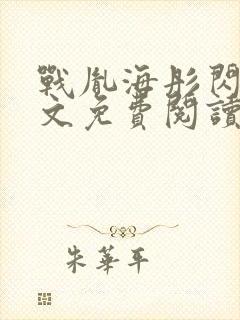 戰胤海彤閃
文免費閱讀
朱華平